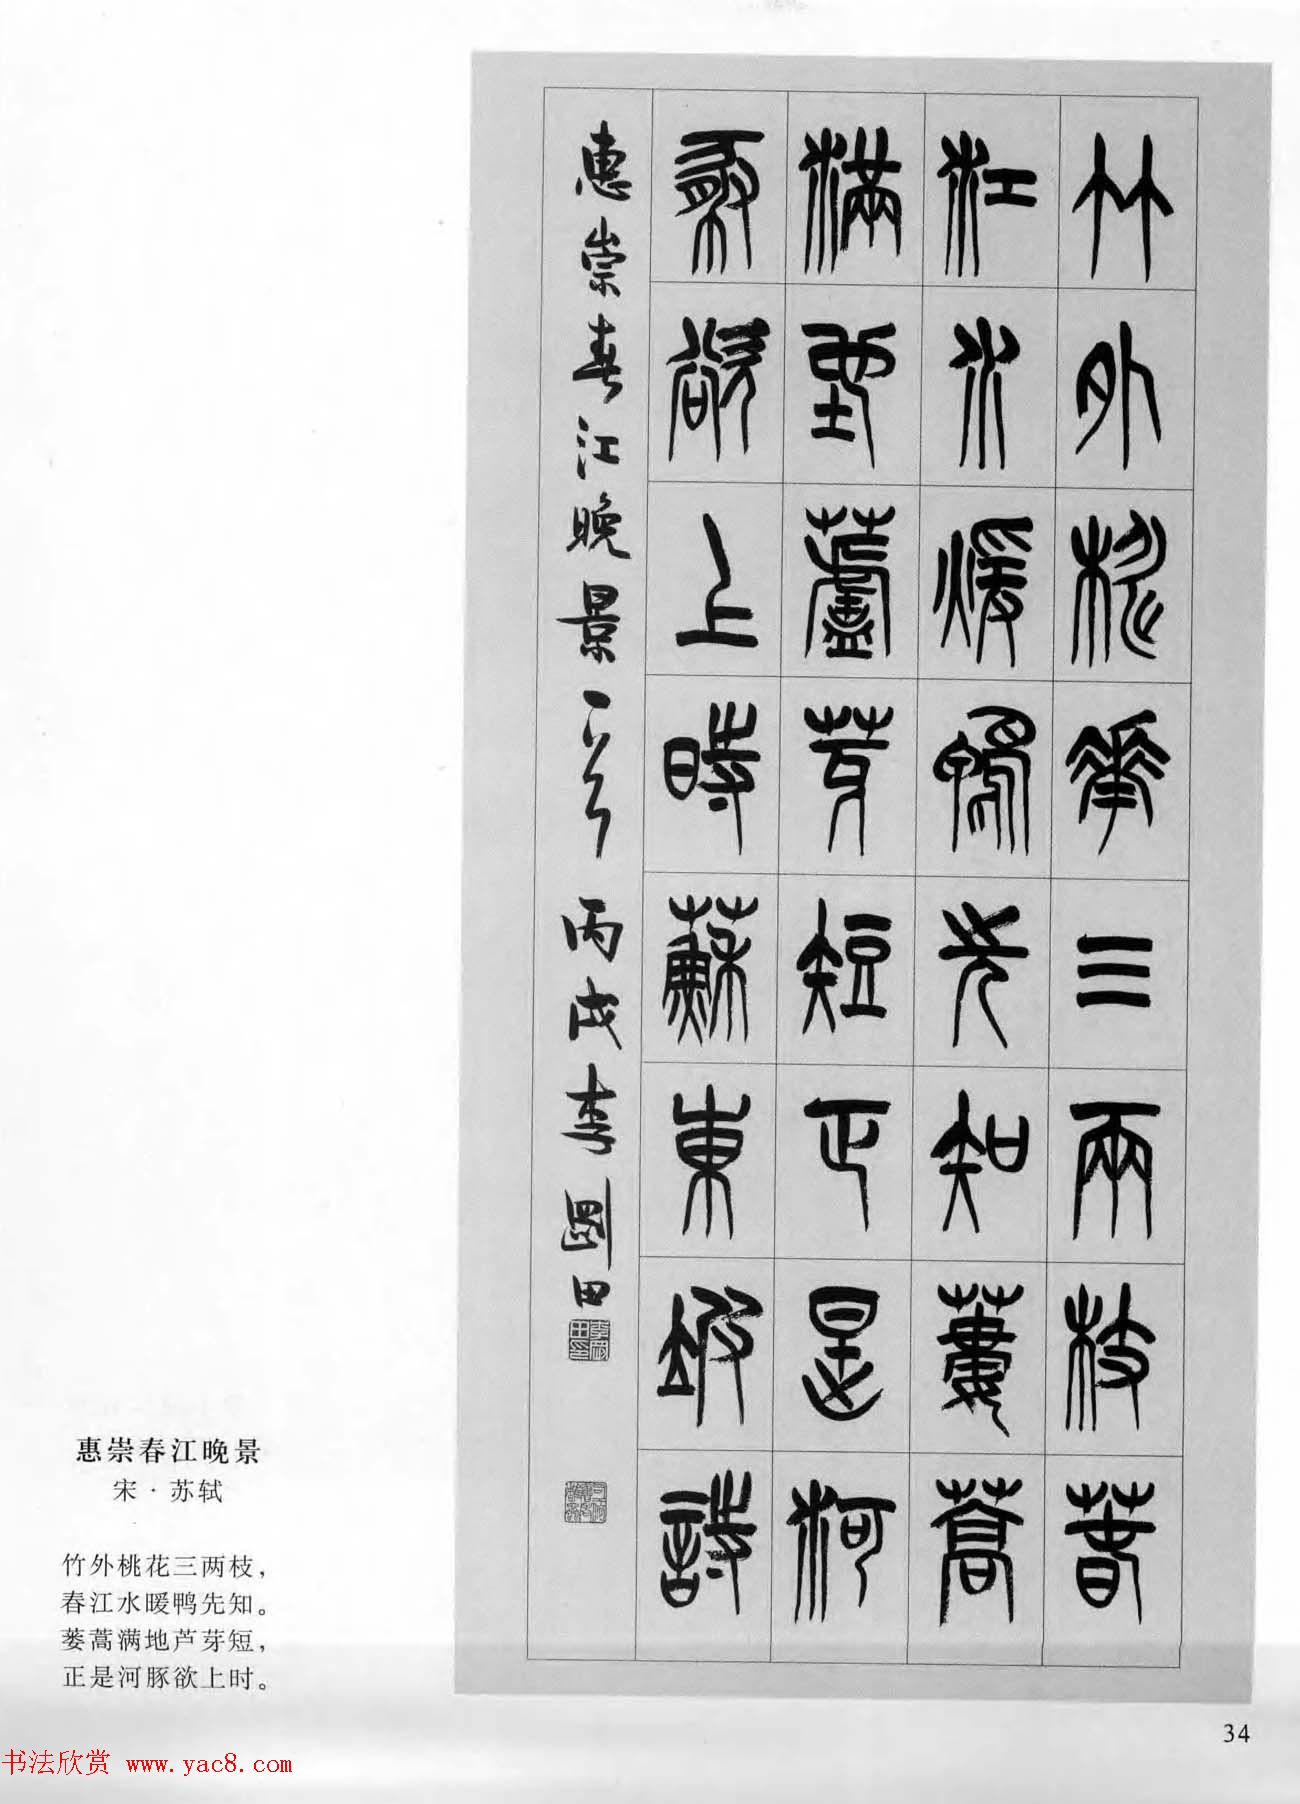 竹外桃華三兩枝春
江水煖鴨先知蔞蒿
滿地蘆芽短正是河
豚欲上時蘇東坡詩
惠崇春江晚景一首 丙戌李剛田
惠崇春江晚景
宋·苏轼
竹外桃花三两枝，
春江水暖鸭先知。
蒌蒿满地芦芽短，
正是河豚欲上时。
34
书法欣赏 www.yac8.com